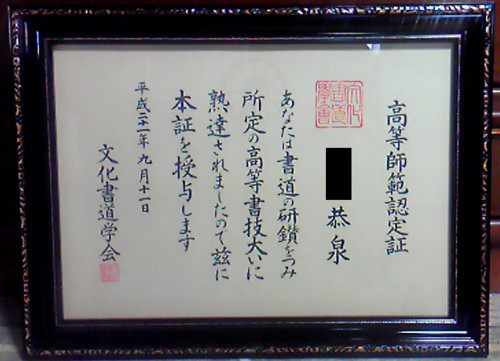 高等師範認定証
恭泉
あなたは書道の研鑽をつみ
所定の高等書技大いに
熟達されましたので茲に
本証を授与します
平成二十一年九月十一日
文化書道学会
文化書道學會